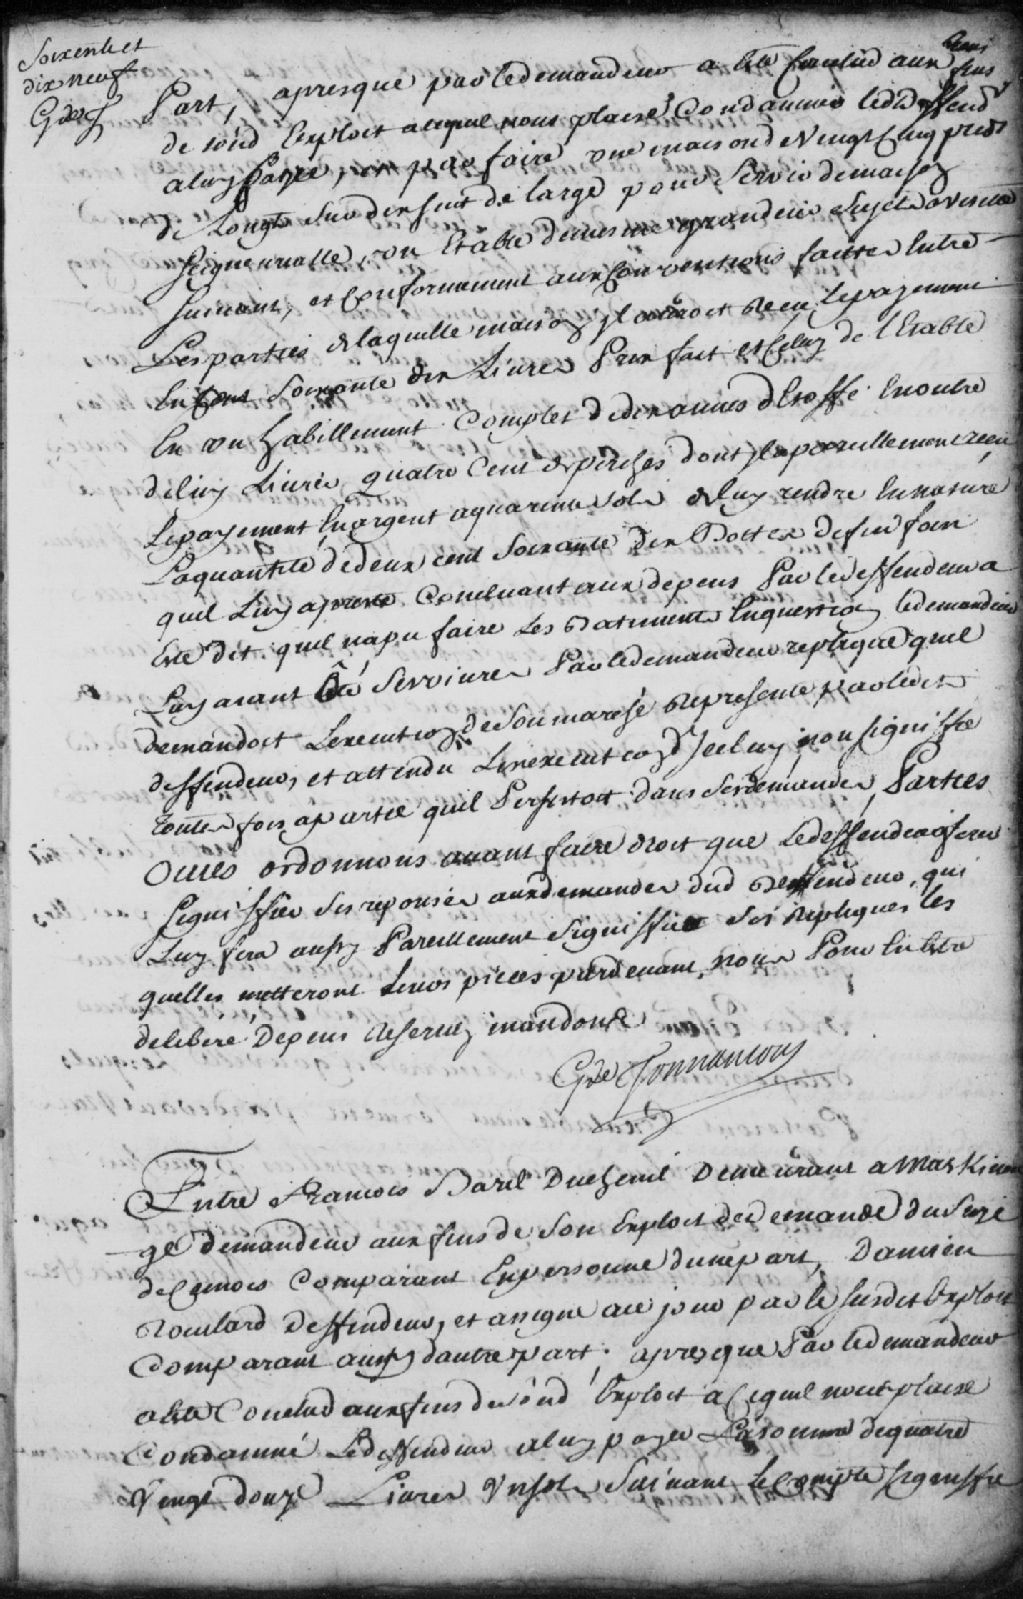 Soixente et
dix neuf
part, apresque par ledemandeur a eté Conclud aux fins
de soud Exploit acequil nous plaise Condamner led deffend
aluy payer, et parfaire une maison de Vingt Cinq pieds
de Longs sur dix huit de large pour servir demaison
seigneurialle, un Etable de mesme grandeur sujet a visitte
suivant, et Conformement aux Conventions faittes Entre
Les parties de laquelle maison il auroit Receu le payement
En Cent soixante dix Livres Prix fait et Celuy de l'Etable
En un habillement Complet de dix aunes d'Etoffe En outre
de luy Livrer quatre Cent de perches dont il a pareillement receu
Le payement En argent a quarente sols de luy rendre En nature
La quantité de deux cent soixante dix Bottes de foin
quil Luy a Concluant aux depens Par le deffendeur a
Eté dit quil n'a pu faire Les Batiments En question le demandeur
Luy ayant oté ses vivres Par le demandeur repliqué quil
demandoit L'execution de son marché Representé par ledit
deffendeur, et attendu L'inexecution d'Iceluy non signiffié
toutes fois a partie quil Persistoit dans ses demandes, Parties
Ouies ordonnons avant faire droit que Le deffendeur fera
signiffier ses reponses aux demandes dud deffendeur, qui
Luy fera aussy Pareillement signiffier ses Repliques les
quelles metteront Leurs pieces pardevant nous Pour En Etre
deliberé Depens Reservez mandons
Gde Tonnancour
Entre François Baril Ducheni Demeurant a Maskinon
gé demandeur aux fins de son Exploit de demande du seize
de Ce mois Comparant En personne d'une part, Damien
Roulard Deffendeur, et assigné a ce jour par le susdit Exploit
Comparant aussy d'autre part; apres que Par le demandeur
a eté Conclud aux fins de sond Exploit a Cequil nous plaise
Condamné Le deffendeur a luy payer La somme de quatre
Vingt douze Livres Un sols suivant le Compte signiffié